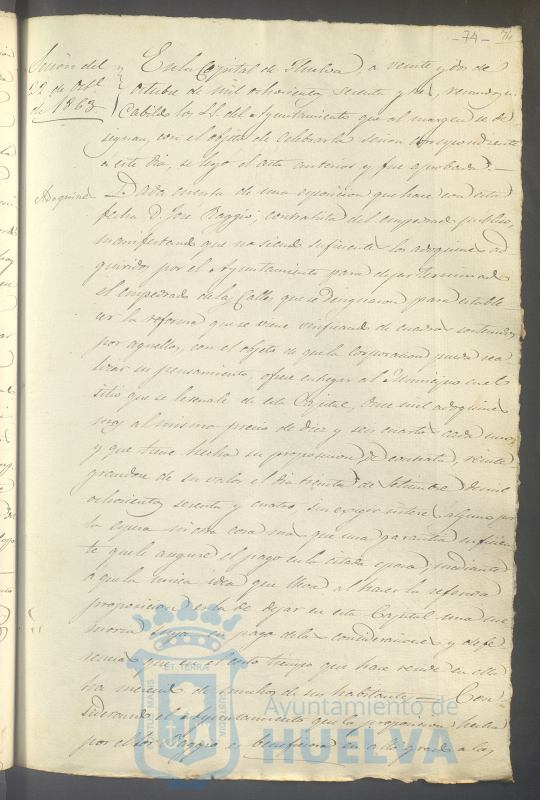 - 74 -
74
Sesion del
22 de Octe
de 1863
En la Capital de Huelva, a veinte y dos de
Octubre de mil ochocientos sesenta y tres, reunidos en
Cabildo los S.S. del Ayuntamiento que al margen se de
signan, con el objeto de celebrar la sesion correspondiente
a este dia, se leyó el acta anterior y fue aprobada. —
Adoquines
Dada cuenta de una esposicion que hace con esta
fecha D. Jose Baggio, contratista del empedrado publico,
manifestando que no siendo suficientes los adoquines ad
quiridos por el Ayuntamiento para dejar terminado
el empedrado de las Calles que se designaron para estable
cer la reforma que se viene verificando de cuadros contenidos
por aquellos, con el objeto de que la corporacion pueda rea
lizar su pensamiento, ofrece entregar al Municipio en el
sitio que se le señale de esta Capital, once mil adoquines
mas al mismo precio de diez y seis cuartos cada uno,
y que tiene hecha su proposicion de contrata, reinte
grandose de su valor el dia treinta de Setiembre de mil
ochocientos sesenta y cuatro sin exigir interes alguno por
la espera ni otra cosa mas que una garantia suficien
te que le asegure el pago en la citada epoca, mediante
a que la unica idea que lleva al hacer la referida
proposicion es la de dejar en esta Capital una me
moria suya en pago de las consideraciones y defe
rencias que en el corto tiempo que hace reside en ella
ha merecido de muchos de sus habitantes — Con
siderando el Ayuntamiento que la proposicion hecha
por el Sor Baggio es beneficiosa en alto grado a los
PORTUS MARIS ET TERRÆ CUSTODIA
Ayuntamiento de
HUELVA